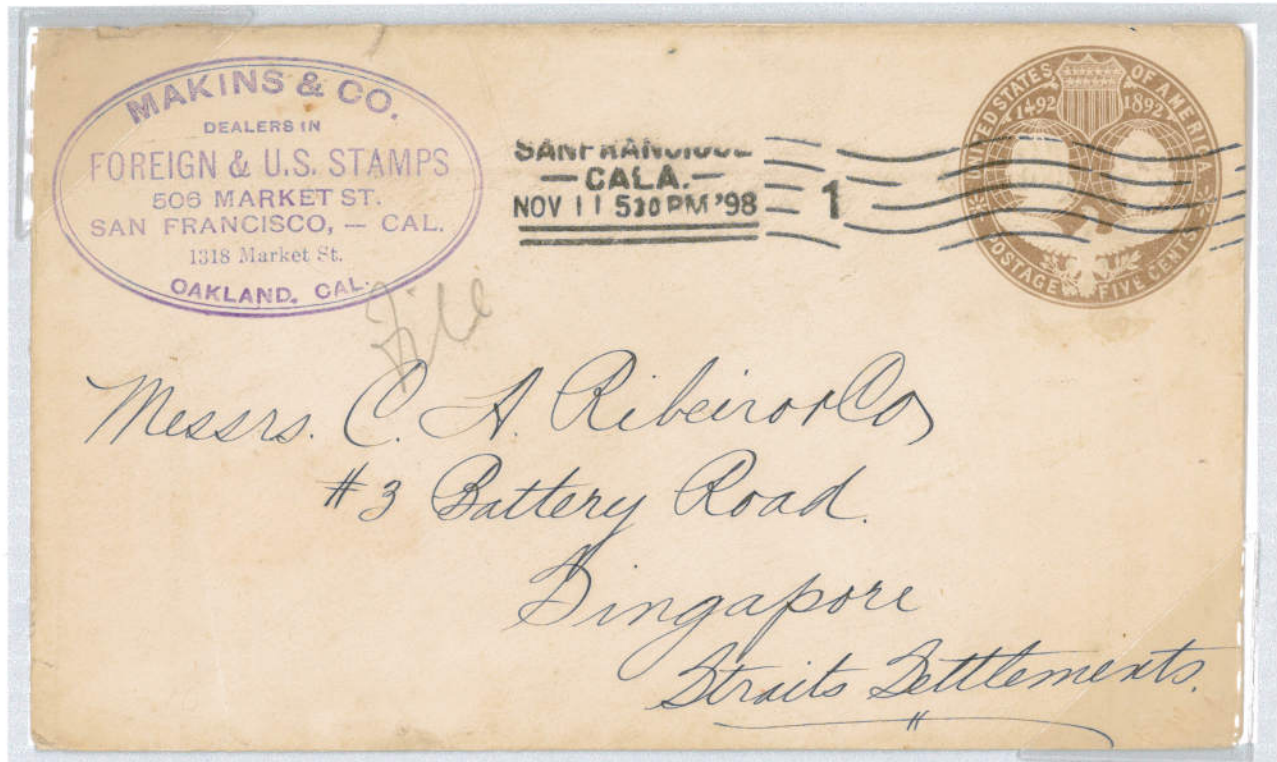 MAKINS & CO.
DEALERS IN
FOREIGN & U.S. STAMPS
506 MARKET ST.
SAN FRANCISCO, — CAL.
1318 Market St.
OAKLAND, CAL.
SAN FRANCISCO
— CALA. —
NOV 11 530 PM '98
1
UNITED STATES OF AMERICA
1492 1892
POSTAGE FIVE CENTS
File
Messrs. C. A. Ribeiro & Co
#3 Battery Road.
Singapore
Straits Settlements.